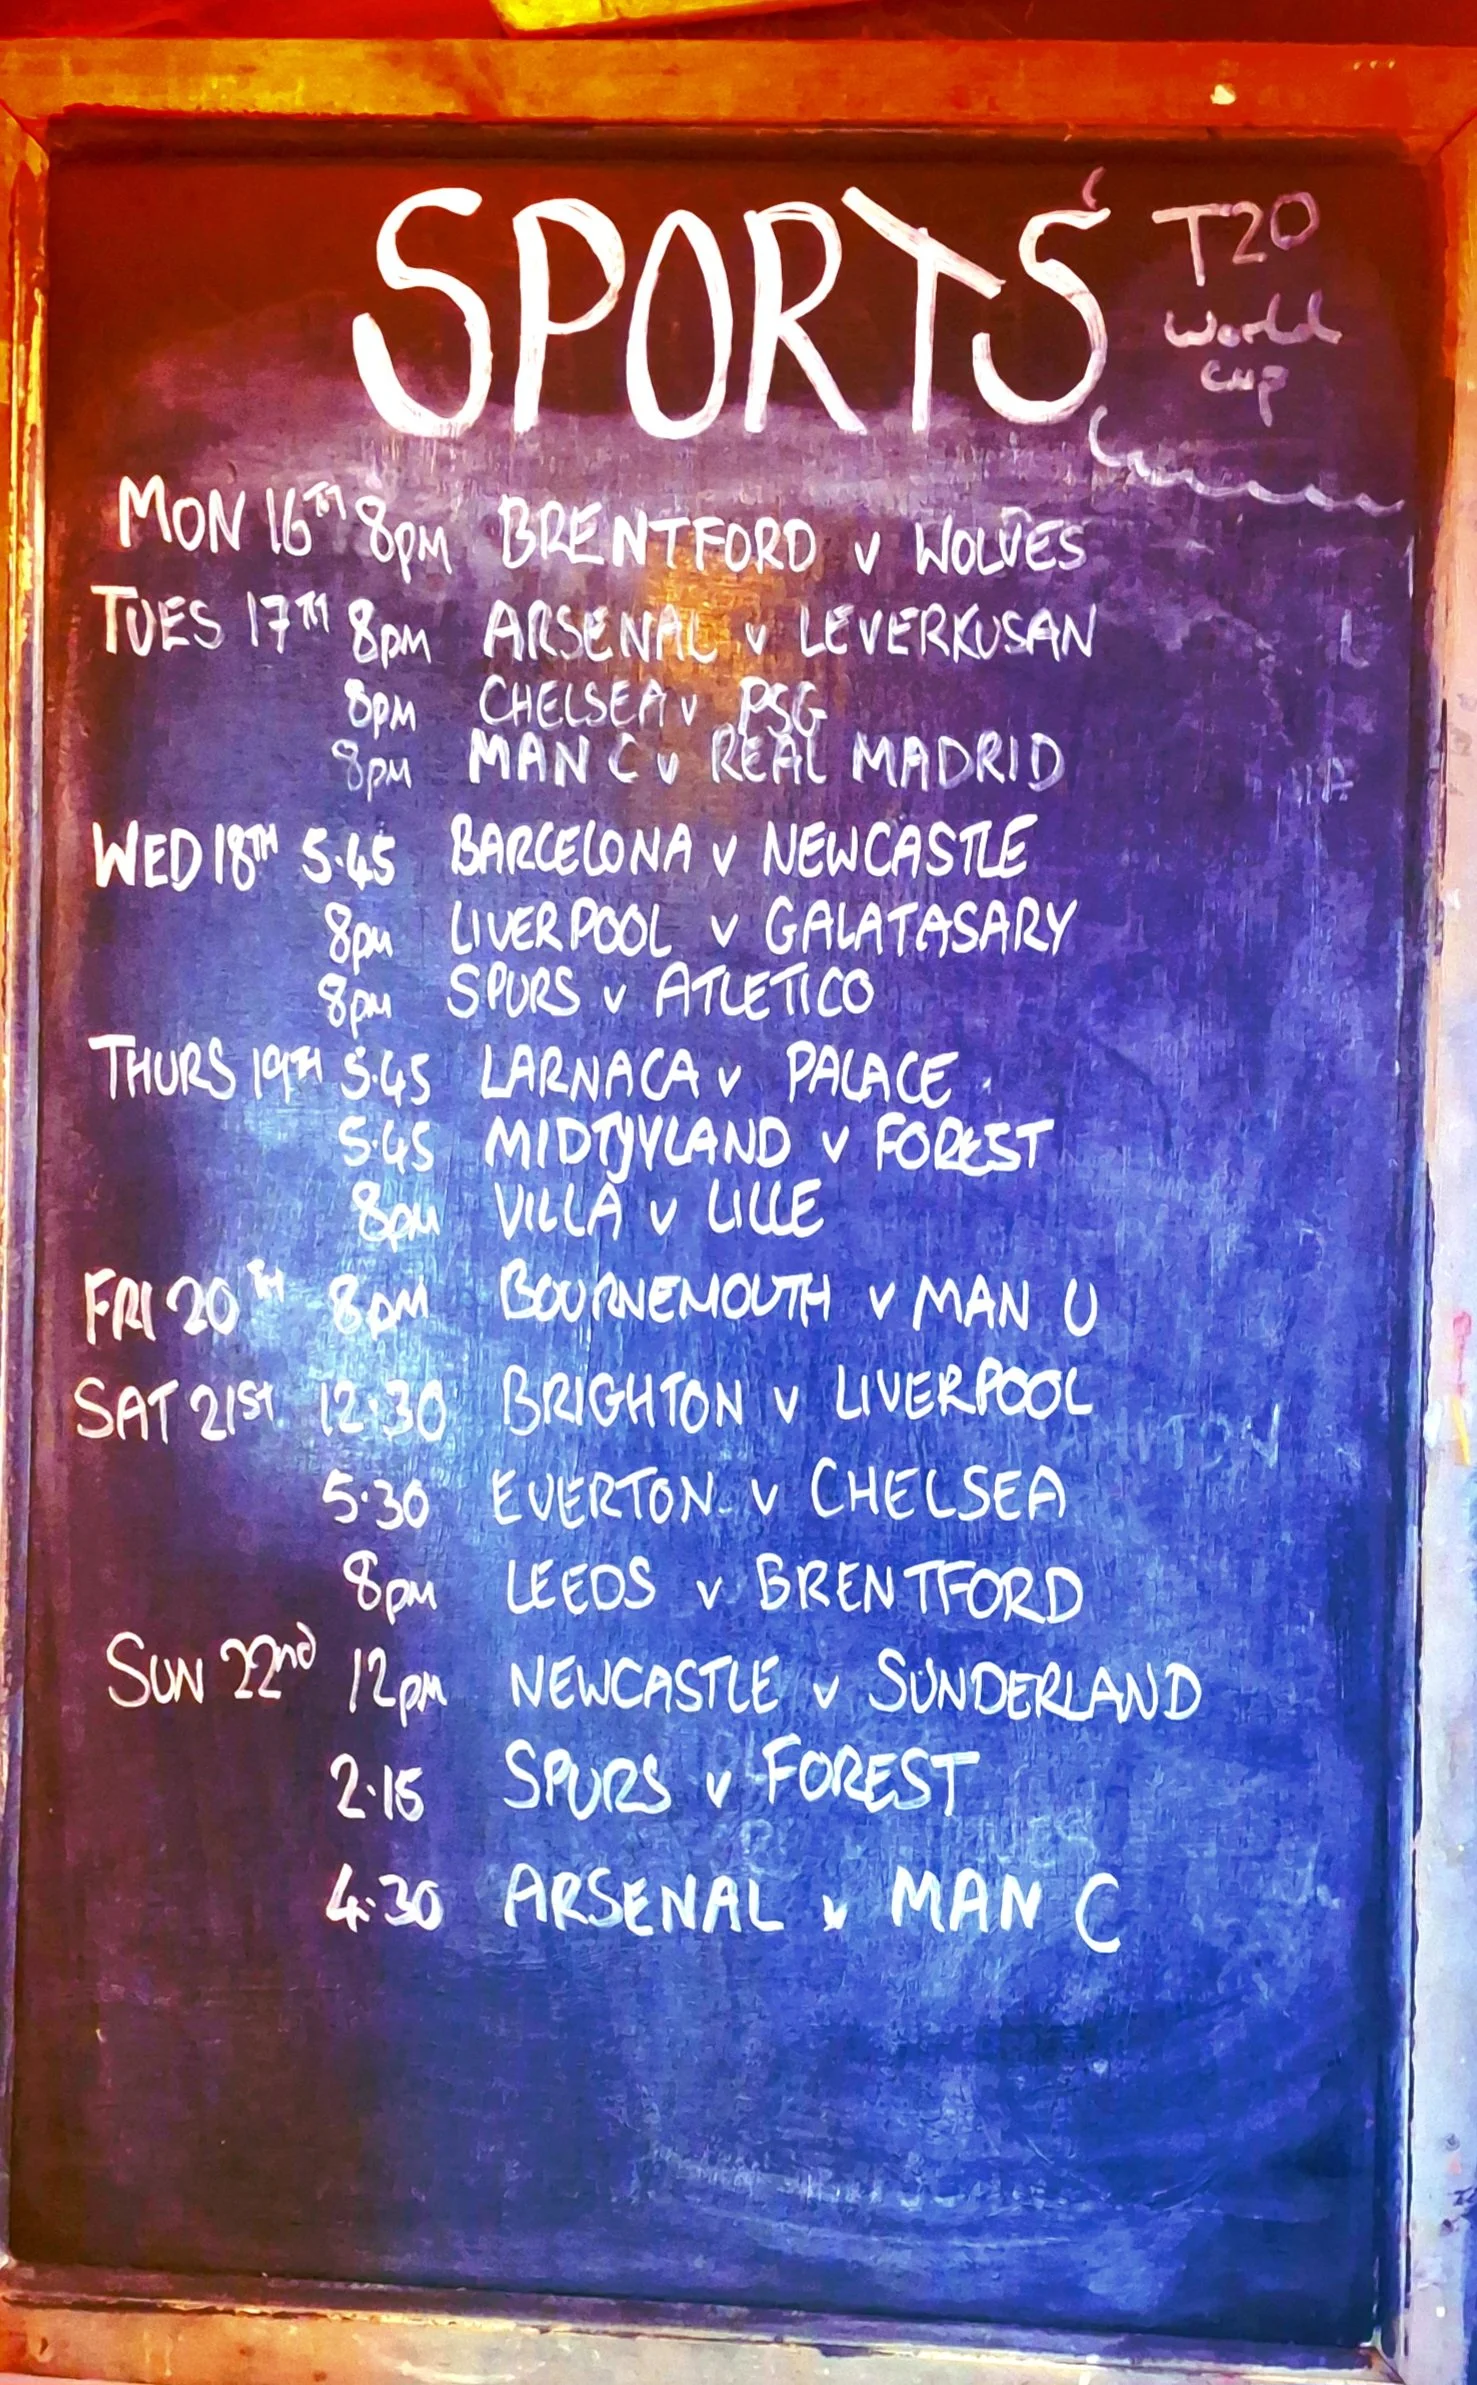 SPORTS
T20
World
Cup
MON 16TH 8PM BRENTFORD v WOLVES
TUES 17TH 8PM ARSENAL v LEVERKUSAN
8PM CHELSEA v PSG
8PM MAN C v REAL MADRID
WED 18TH 5.45 BARCELONA v NEWCASTLE
8PM LIVERPOOL v GALATASARY
8PM SPURS v ATLETICO
THURS 19TH 5.45 LARNACA v PALACE
5.45 MIDTJYLAND v FOREST
8PM VILLA v LILLE
FRI 20TH 8PM BOURNEMOUTH v MAN U
SAT 21ST 12.30 BRIGHTON v LIVERPOOL
5.30 EVERTON v CHELSEA
8PM LEEDS v BRENTFORD
SUN 22nd 12pm NEWCASTLE v SUNDERLAND
2.15 SPURS v FOREST
4.30 ARSENAL v MAN C